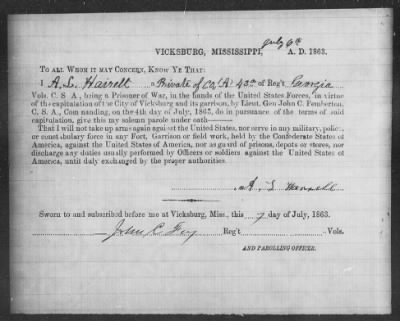 VICKSBURG, MISSISSIPPI, July 6th A. D. 1863.
TO ALL WHOM IT MAY CONCERN, KNOW YE THAT:
I A. L. Hairell a Private of Co. "A" 43rd Reg't Georgia
Vols. C. S. A., being a Prisoner of War, in the hands of the United States Forces, in virtue
of the capitulation of the City of Vicksburg and its garrison, by Lieut. Gen John C. Pemberton,
C. S. A., Commanding, on the 4th day of July, 1863, do in pursuance of the terms of said
capitulation, give this my solemn parole under oath——
That I will not take up arms again against the United States, nor serve in any military, police,
or constabulary force in any Fort, Garrison or field work, held by the Confederate States of
America, against the United States of America, nor as guard of prisons, depots or stores, nor
discharge any duties usually performed by Officers or soldiers against the United States of
America, until duly exchanged by the proper authorities.
A. L.
Sworn to and subscribed before me at Vicksburg, Miss., this 7 day of July, 1863.
John C. Fry Reg't Vols.
AND PAROLLING OFFICER.